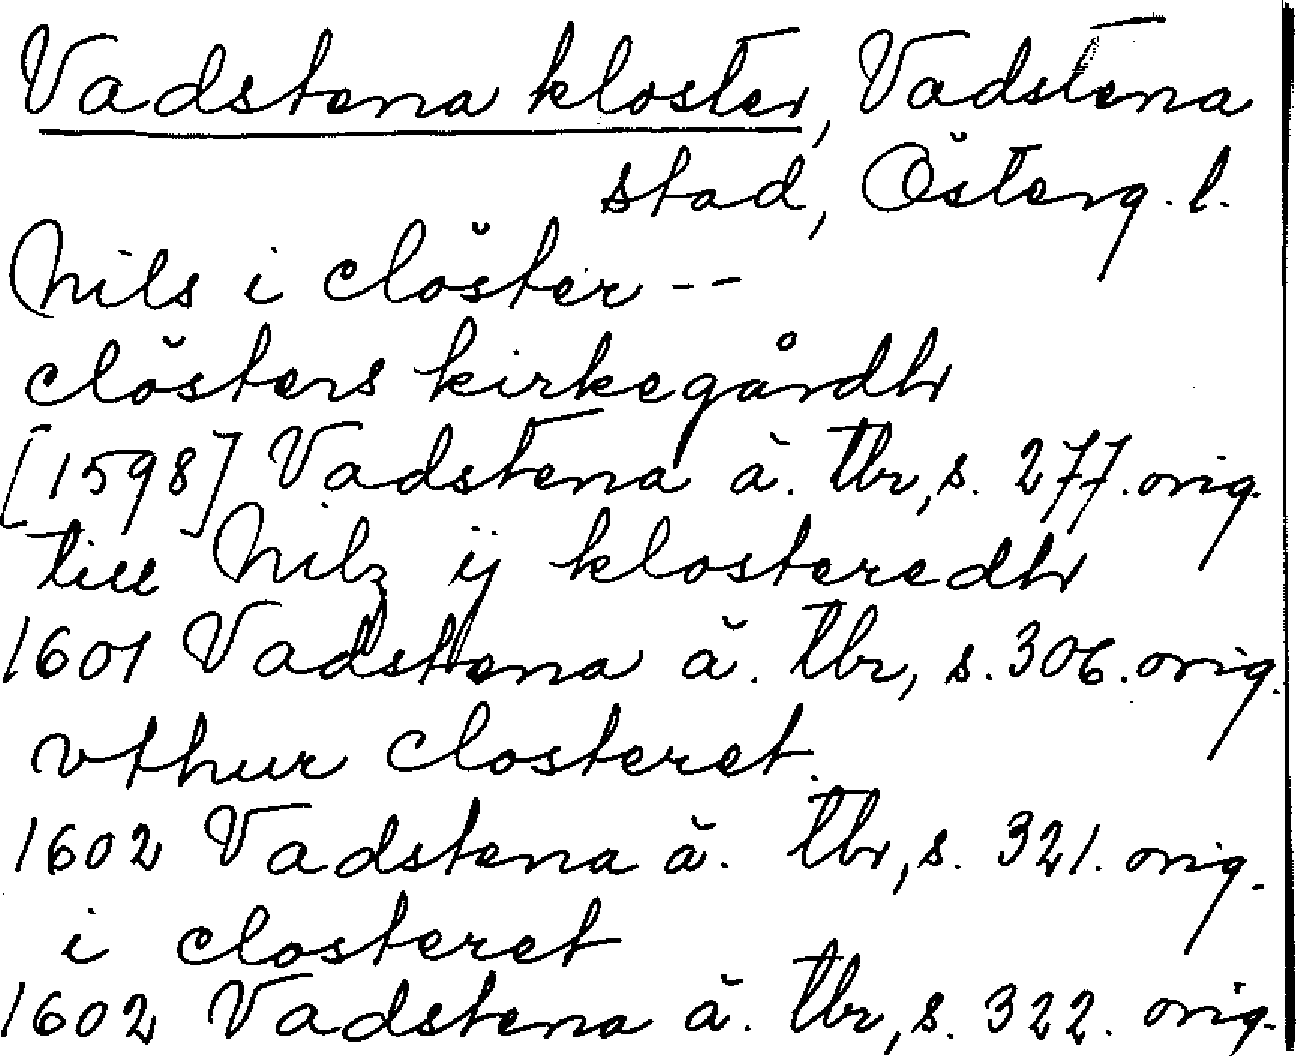 Vadstena kloster, Vadstena
stad, Österg.l.
Nils i clöster --
clösters kirkegårdh
[1598] Vadstena ä. tbr, s. 277. orig.
till Nilz ÿ klosteredh
1601 Vadstena ä. tbr, s. 306. orig.
vthur closteret.
1602 Vadstena ä. tbr, s. 321. orig.
i closteret
1602 Vadstena ä. tbr, s. 322. orig.